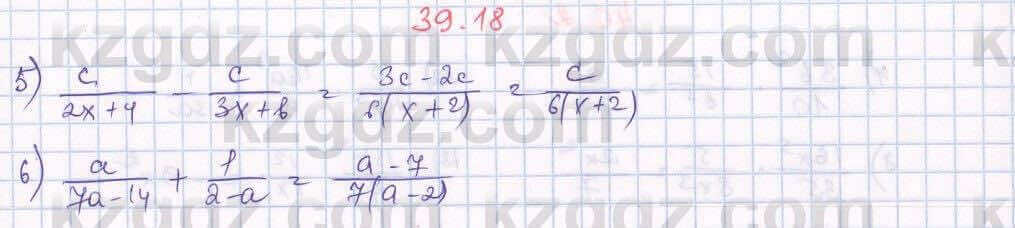 39.18
kzgdz.com kzgdz.com
5) c/(2x+4) - c/(3x+6) = (3c-2c)/(6(x+2)) = c/(6(x+2))
kzgdz.com
6) a/(7a-14) + 1/(2-a) = (a-7)/(7(a-2))
kzgdz.com kzgdz.com